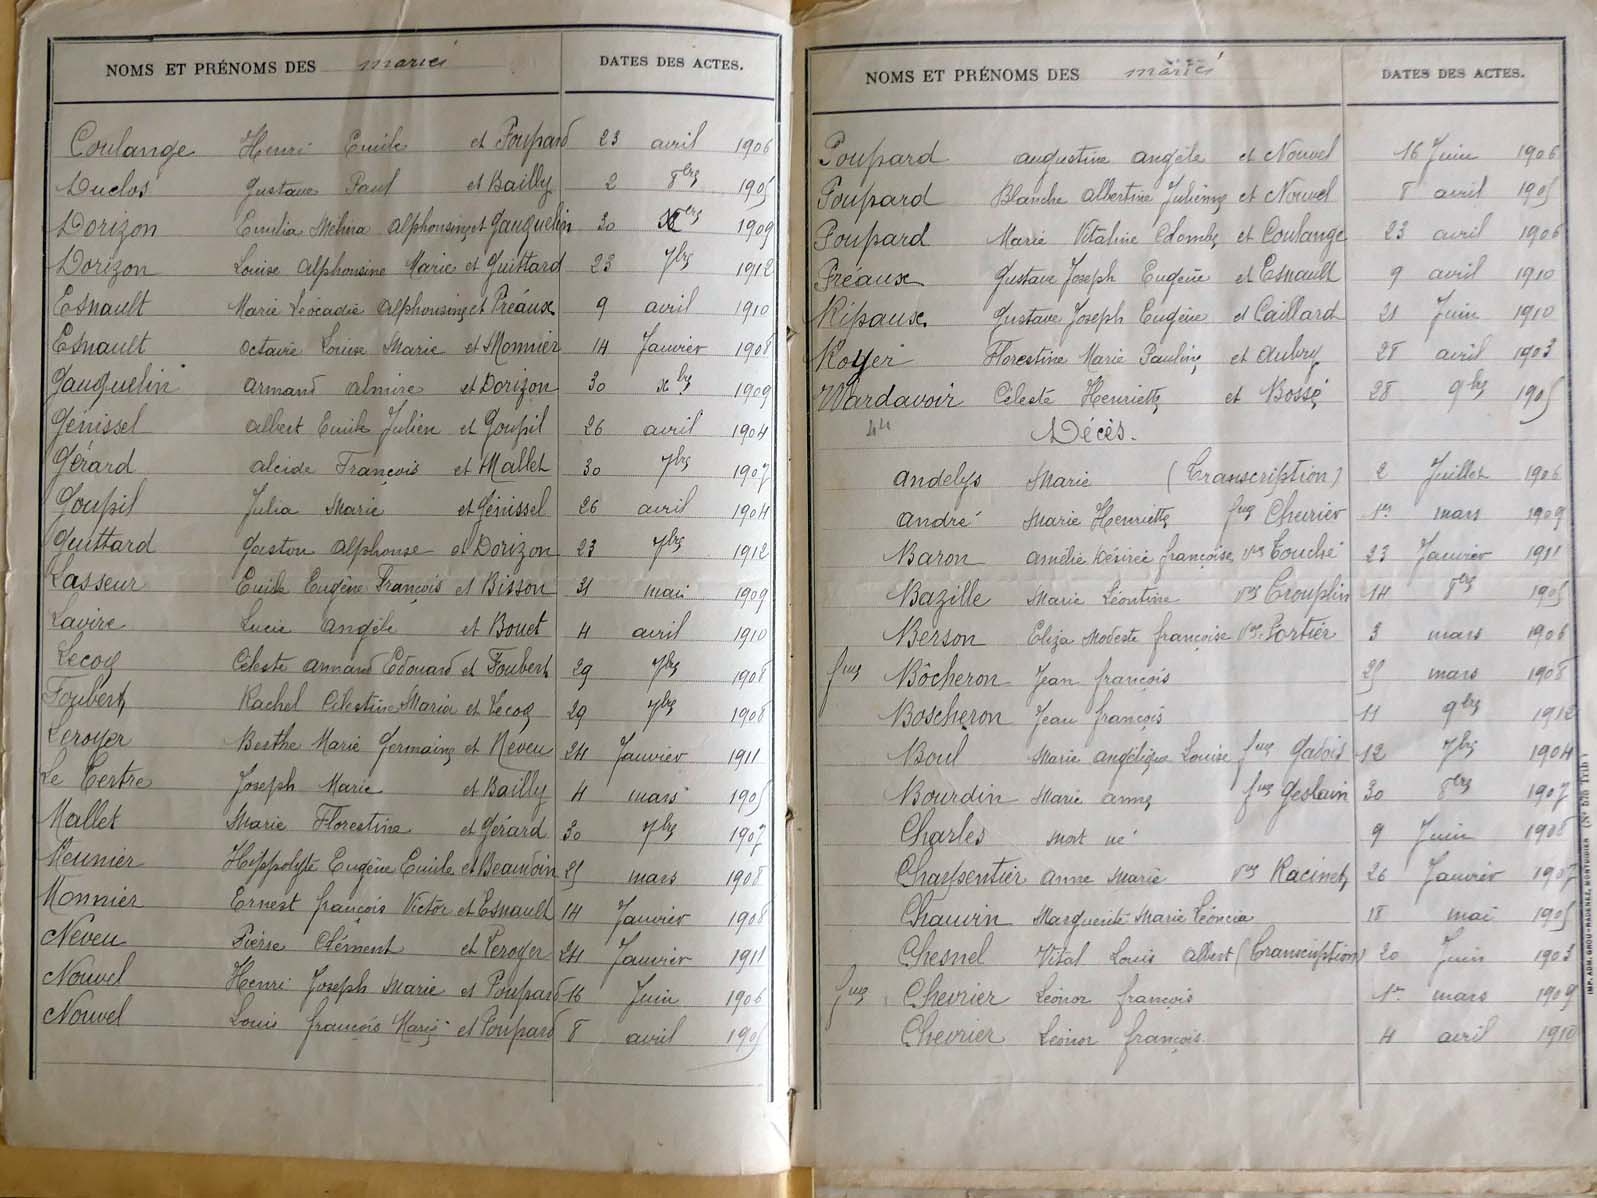 NOMS ET PRÉNOMS DES mariés DATES DES ACTES.
Coulange Henri Emile et Poupard 23 avril 1906
Duclos Gustave Paul et Bailly 2 8bre 1905
Dorizon Emilia Mélina Alphonsine et Gauquelin 30 1909
Dorizon Louise Alphonsine Marie et Guittard 23 7bre 1912
Esnault Marie Léocadie Alphonsine et Préaux 9 avril 1910
Esnault Octavie Louise Marie et Monnier 14 Janvier 1908
Gauquelin Armand Almire et Dorizon 30 xbre 1909
Génissel Albert Emile Julien et Goupil 26 avril 1904
Gérard Alcide François et Mallet 30 7bre 1907
Goupil Julia Marie et Génissel 26 avril 1904
Guittard Gaston Alphonse et Dorizon 23 7bre 1912
Lasseur Emile Eugène François et Bisson 31 mai 1909
Lavire Lucie Angèle et Bouet 4 avril 1910
Lecoq Céleste Armand Edouard et Foubert 29 7bre 1908
Foubert Rachel Célestine Maria et Lecoq 29 7bre 1908
Leroyer Berthe Marie Germaine et Neveu 24 Janvier 1911
Le Tertre Joseph Marie et Bailly 4 mars 1905
Mallet Marie Florestine et Gérard 30 7bre 1907
Meunier Hippolyte Eugène Emile et Beaudoin 25 mars 1908
Monnier Ernest françois Victor et Esnault 14 Janvier 1908
Neveu Pierre Clément et Leroyer 24 Janvier 1911
Nouvel Henri Joseph Marie et Poupard 16 Juin 1906
Nouvel Louis françois Marie et Poupard 8 avril 1905
NOMS ET PRÉNOMS DES mariés DATES DES ACTES.
Poupard Augustine Angèle et Nouvel 16 Juin 1906
Poupard Blanche Albertine Julienne et Nouvel 8 avril 1905
Poupard Marie Vitaline Colombe et Coulange 23 avril 1906
Préaux Gustave Joseph Eugène et Esnault 9 avril 1910
Ripaux Gustave Joseph Eugène et Caillard 21 Juin 1910
Royer Florestine Marie Pauline et Aubry 28 avril 1903
Wardavoir Céleste Henriette et Bossé 28 9bre 1905
44 Décès.
Andelys Marie (Transcription) 2 Juillet 1906
André Marie Henriette fme Chevrier 1er mars 1909
Baron Amélie Désirée françoise vve Touché 23 Janvier 1911
Bazille Marie Léontine vve Trouplin 14 8bre 1905
Berson Eliza Modeste françoise vve Portier 3 mars 1906
fme Bôcheron Jean françois 25 mars 1908
Boscheron Jean françois 11 9bre 1912
Boul Marie Angélique Louise fme Gadois 12 7bre 1904
Bourdin Marie Anne fme Geslain 30 8bre 1907
Charles mort né 9 Juin 1908
Charpentier Anne Marie vve Racinet 26 Janvier 1907
Chauvin Marguerite Marie Léoncia 18 mai 1905
Chesnel Vital Louis Albert (Transcription) 20 Juin 1903
fme Chevrier Léonor françois 1er mars 1909
Chevrier Léonor françois 4 avril 1910